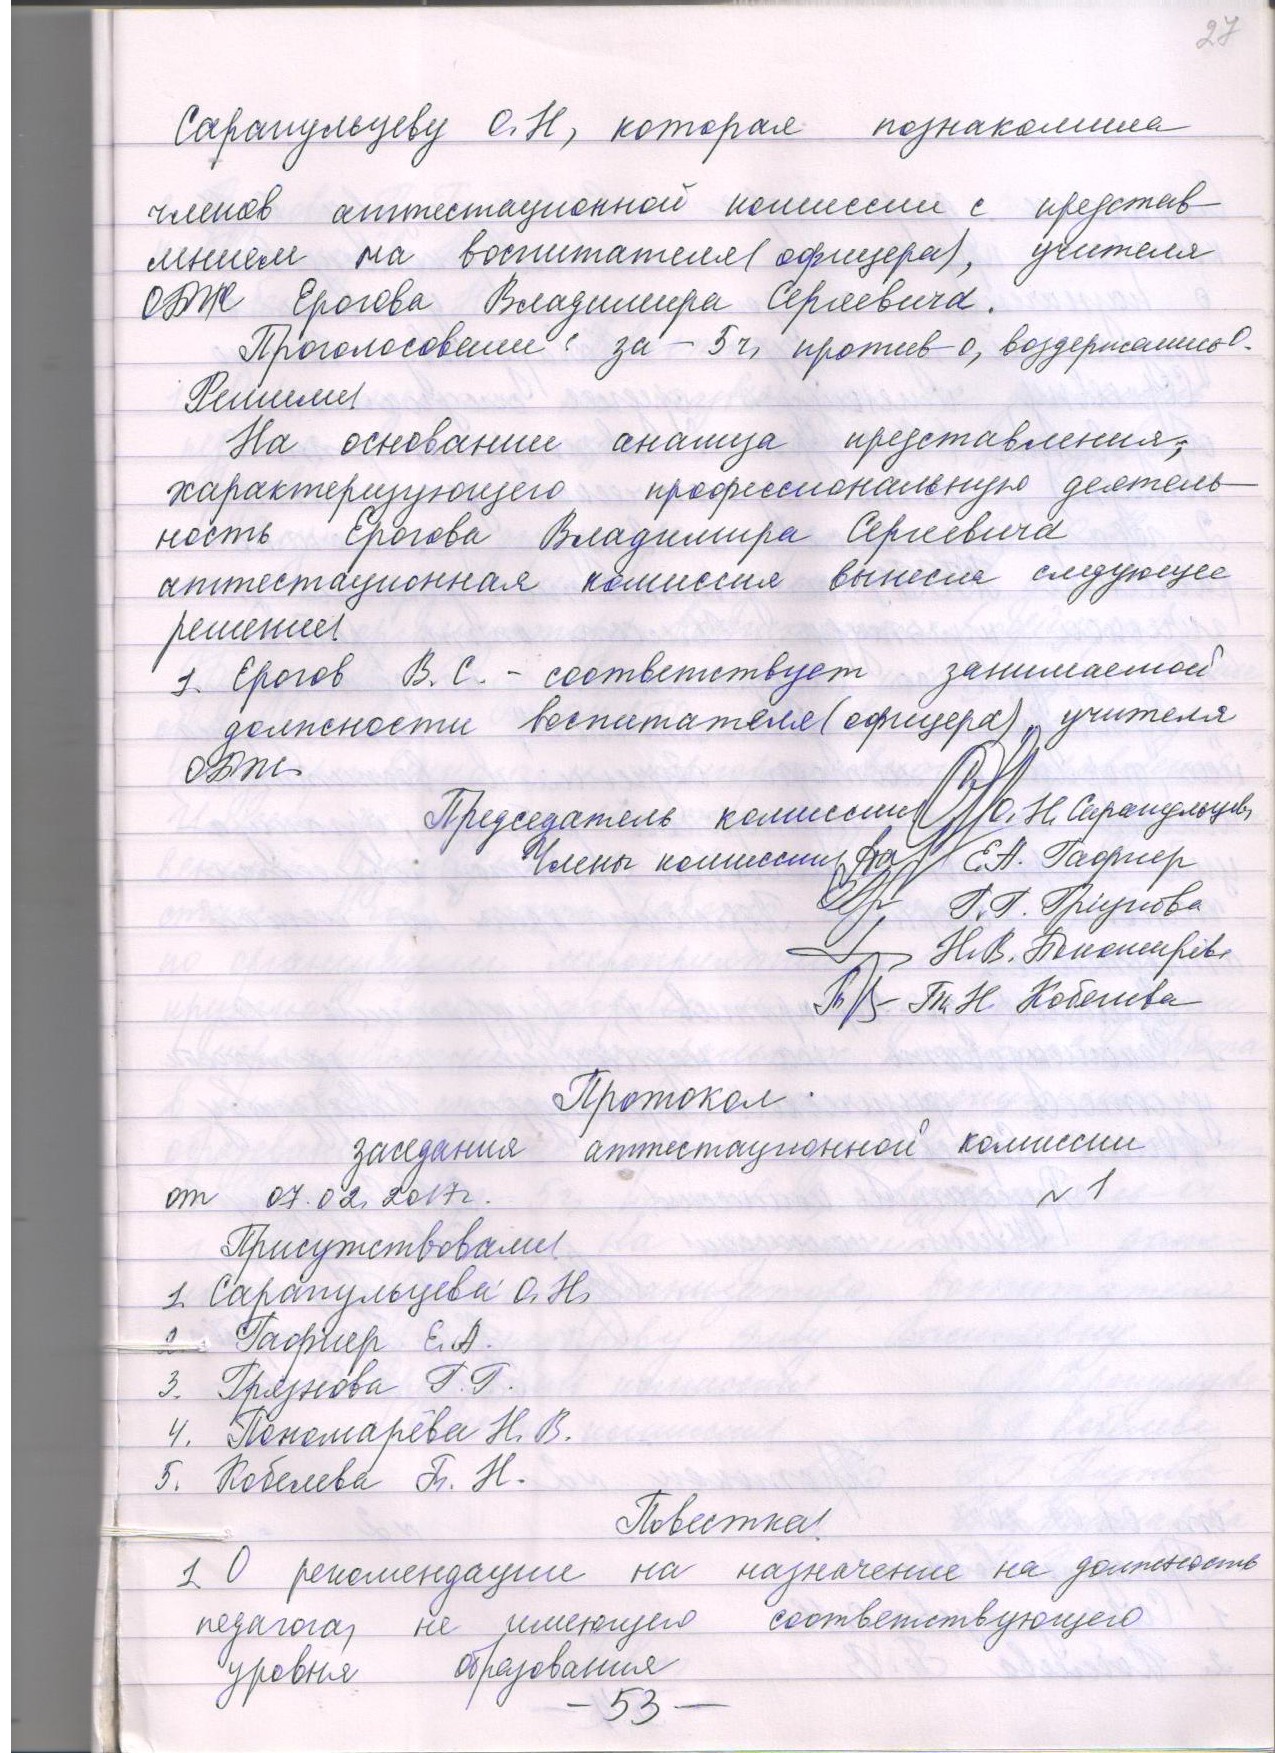 27
Сарапульцеву О.Н, которая познакомила
членов аттестационной комиссии с представ-
лением на воспитателя (офицера), учителя
ОБЖ Ерогова Владимира Сергеевича.
Проголосовали: за - 5 ч, против - 0, воздержались 0.
Решили:
На основании анализа представления,
характеризующего профессиональную деятель-
ность Ерогова Владимира Сергеевича
аттестационная комиссия вынесла следующее
решение:
1. Ерогов В.С. - соответствует занимаемой
должности воспитателя (офицера), учителя
ОБЖ.
Председатель комиссии О.Н. Сарапульцева
Члены комиссии Е.А. Гафнер
Г.Г. Грязнова
Н.В. Пономарёва
Т.Н Кобелева
Протокол
заседания аттестационной комиссии
от 07.02.2017г. № 1
Присутствовали:
1. Сарапульцева О.Н.
2. Гафнер Е.А.
3. Грязнова Г.Г.
4. Пономарёва Н.В.
5. Кобелева Т.Н.
Повестка:
1. О рекомендации на назначение на должность
педагога, не имеющего соответствующего
уровня образования
- 53 -